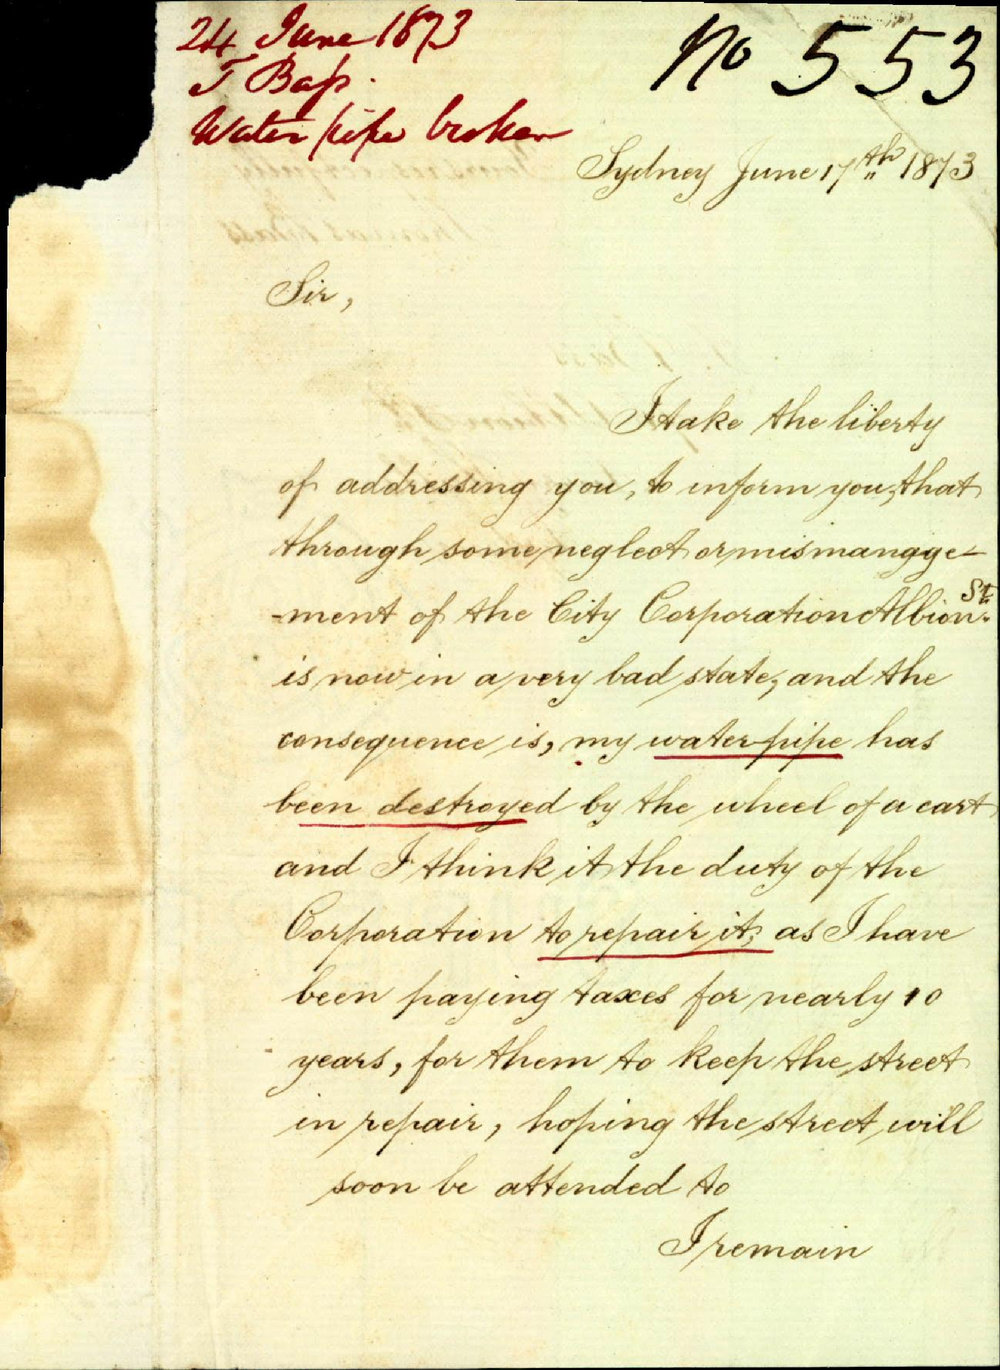 24 June 1873
T Bass.
Water pipe broken
No 553
Sydney June 17th 1873
Sir,
I take the liberty
of addressing you, to inform you, that
through some neglect or mismangge-
-ment of the City Corporation Albion St.
is now in a very bad state, and the
consequence is, my water pipe has
been destroyed by the wheel of a cart
and I think it the duty of the
Corporation to repair it, as I have
been paying taxes for nearly 10
years, for them to keep the street
in repair, hoping the street will
soon be attended to
I remain